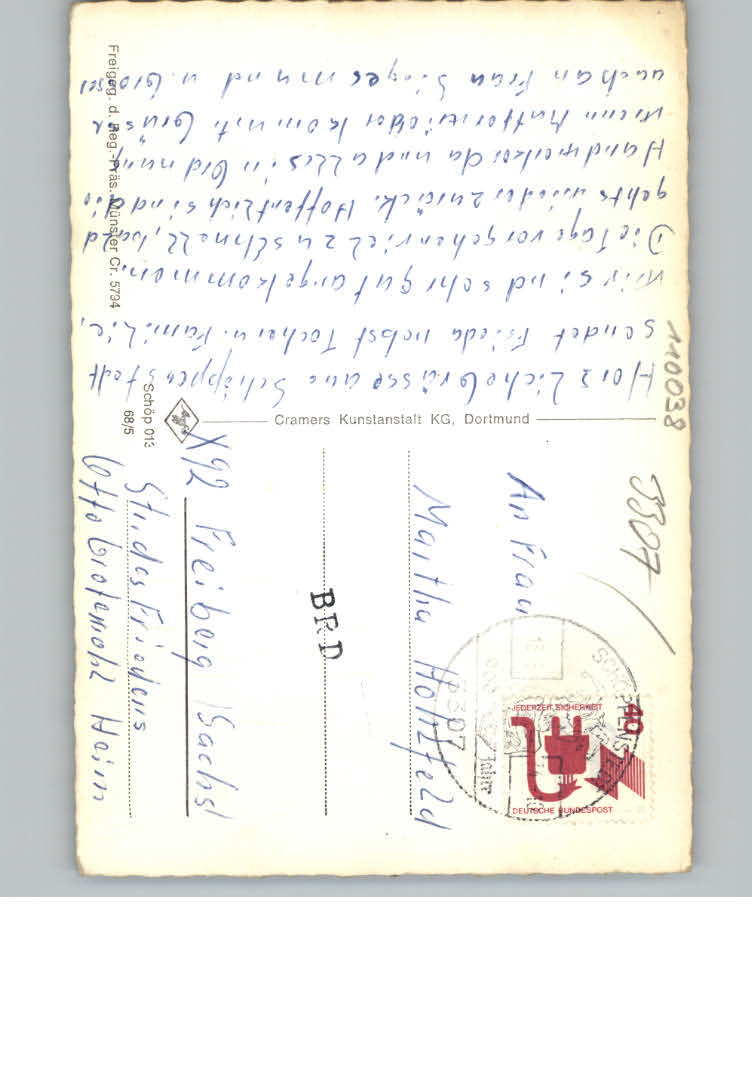 Herzliche Grüsse aus Schöppenstedt
sendet Frieda nebst Tochter u. Familie.
Wir sind sehr gut angekommen.
Die Tage vergehen viel zu schnell, bald
gehts wieder zurück. Hoffentlich sind die
Handwerker da und alles in Ordnung
wenn Mutter wieder kommt. Grüsse
auch an Frau Siegesmund u.
Freigeg. d. Reg.-Präs. Münster Cr. 5794
Schöp 013
68/5
Cramers Kunstanstalt KG, Dortmund
110038
3307
An Frau
Martha Holzfeld
BRD
X92 Freiberg (Sachs)
Str. des Friedens
Otto Grotewohl Heim
40
JEDERZEIT SICHERHEIT
DEUTSCHE BUNDESPOST
SCHÖPPENSTEDT
3307
900 Jahre